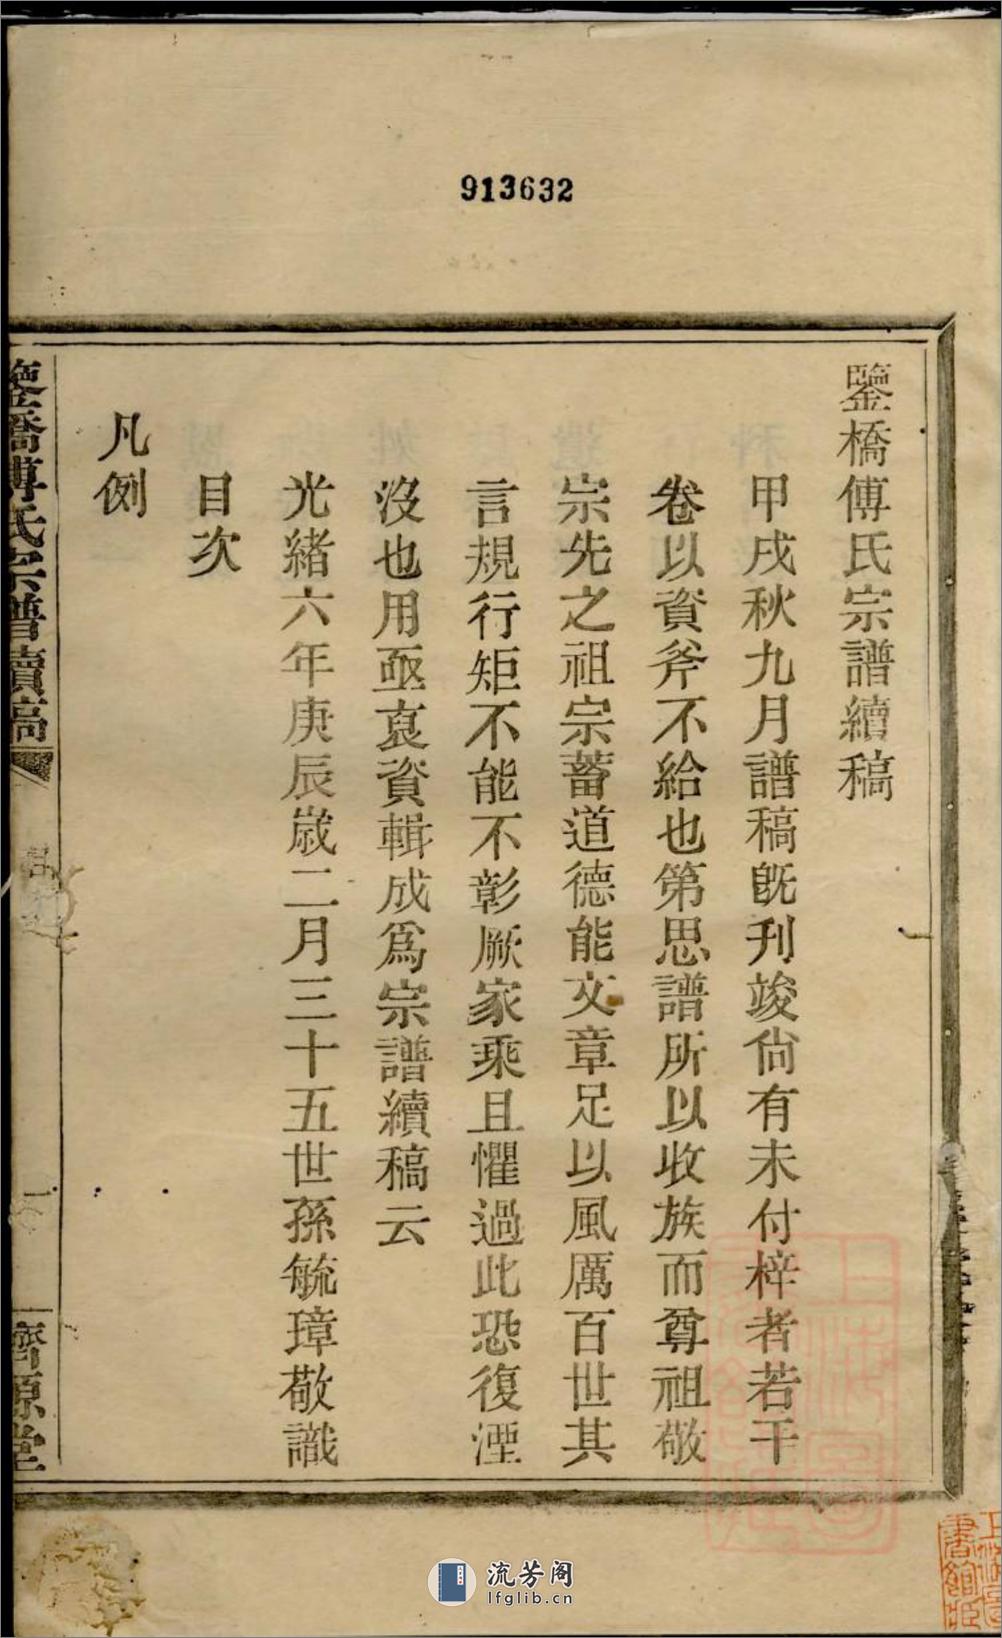 913632
鑒橋傅氏宗譜續稿
甲戌秋九月譜稿旣刋竣尙有未付梓者若干
卷以資斧不給也第思譜所以收族而尊祖敬
宗先之祖宗蓄道德能文章足以風厲百世其
言規行矩不能不彰厥家乘且懼過此恐復湮
沒也用亟裒資輯成爲宗譜續稿云
光緒六年庚辰歲二月三十五世孫毓璋敬識
目次
凡例
鑒橋傅氏宗譜續稿
一
濟源堂
流芳阁
lfglib.cn